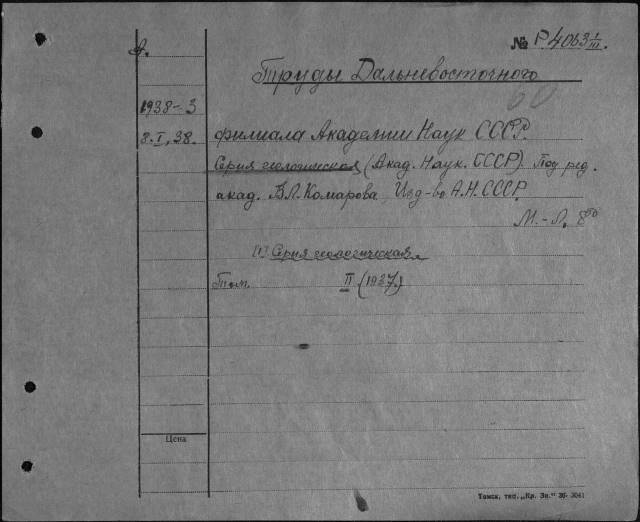 А.
№ Р4063 I/III.
Труды Дальневосточного
60
1938-3
8.I,38.
филиала Академии Наук СССР.
Серия геологическая (Акад. Наук. СССР) Под ред.
акад. В.Л.Комарова, Изд-во А.Н.СССР.
М.-Л. 8°
[1] Серия геологическая
Том. II (1937.)
Цена
Томск, тип. „Кр. Зн.“ 36- 3041